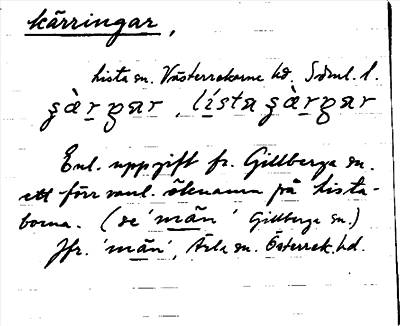 kärringar,
Lista sn. Västerrekarne hd. Sdml. l.
şàr̠ɡar, lísta şàr̠ɡar
Enl. uppgift fr. Gillberga sn.
ett förr vanl. öknamn på Lista-
borna. (se 'män' Gillberga sn.)
Jfr. 'män', Ärla sn. Österrek. hd.